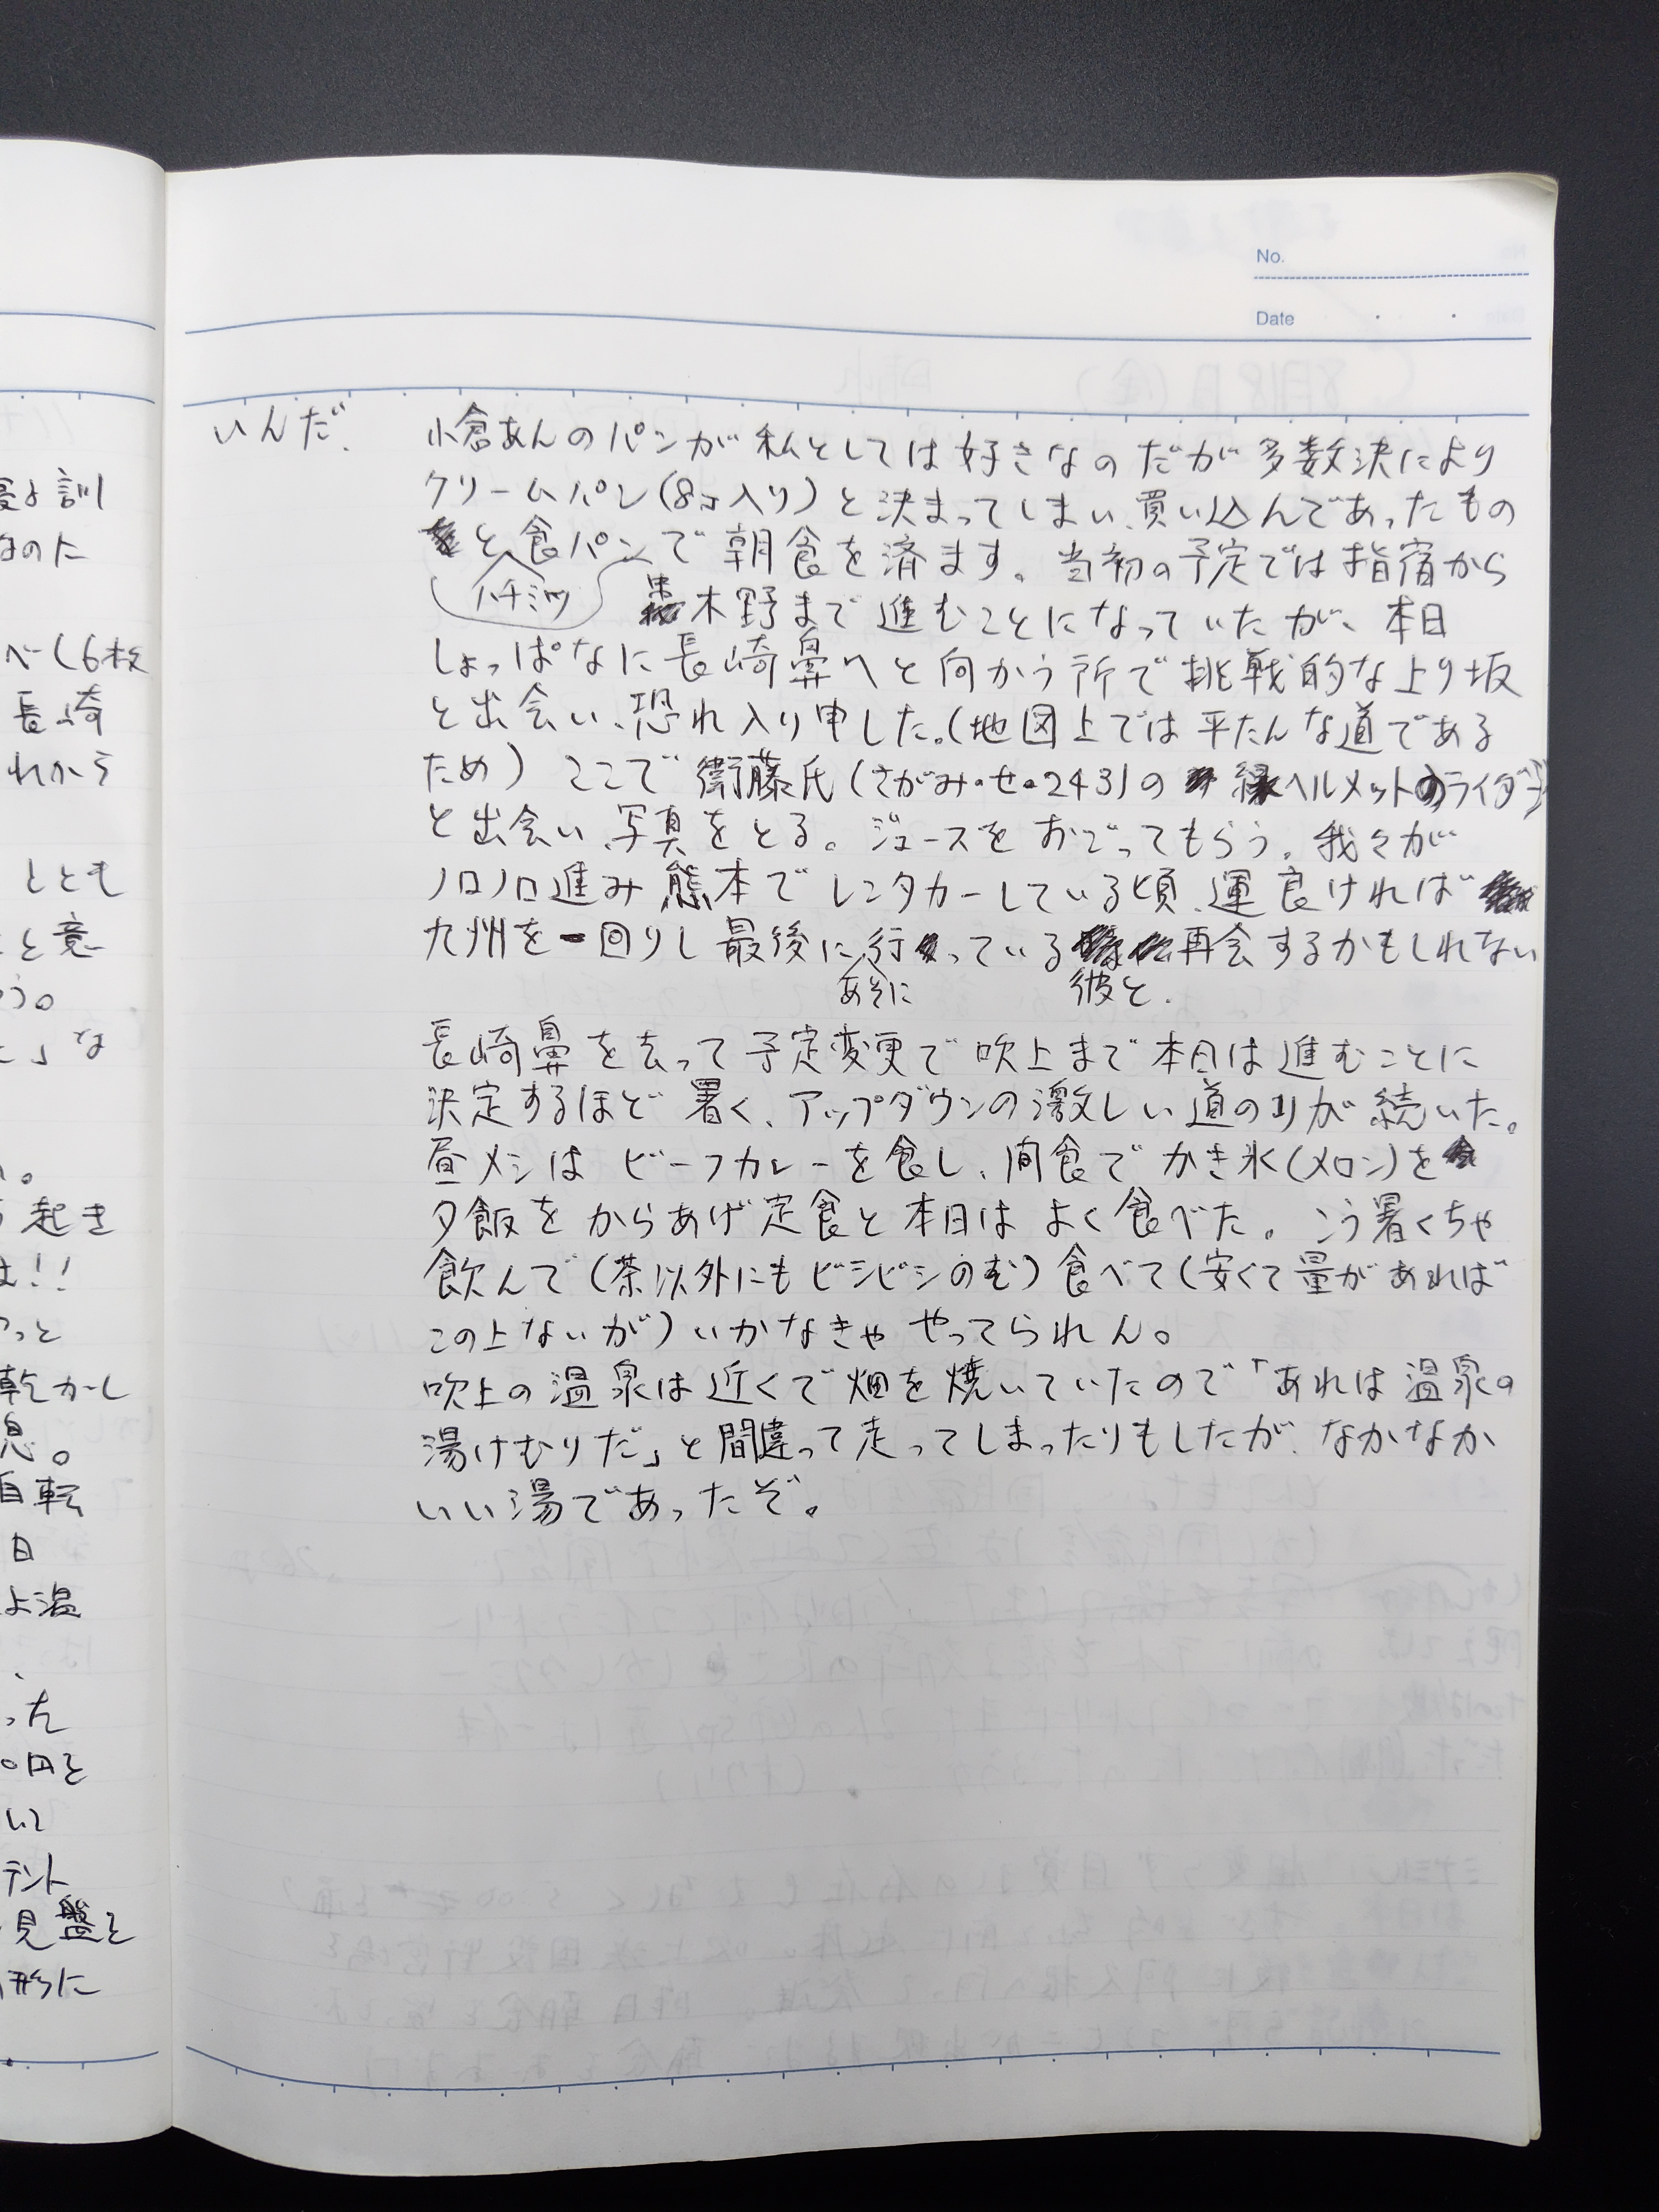 No.
Date
いんだ、
小倉あんのパンが私としては好きなのだが多数決により
クリームパン(8コ入り)と決まってしまい、買い込んであったもの
と食パンで朝食を済ます。当初の予定では指宿から
ハチミツ
串木野まで進むことになっていたが、本日
しょっぱなに長崎鼻へと向かう所で挑戦的な上り坂
と出会い、恐れ入り申した。(地図上では平たんな道である
ため)ここで衛藤氏(さがみ・せ・243)の緑ヘルメットのライダー
と出会い、写真をとる。ジュースをおごってもらう。我々が
ノロノロ進み熊本でレンタカーしている頃、運良ければ
九州を一回りし最後に行っている再会するかもしれない
あそに
彼と、
長崎鼻を去って予定変更で吹上まで本日は進むことに
決定するほど暑く、アップダウンの激しい道のりが続いた。
昼メシはビーフカレーを食し、間食でかき氷(メロン)を
夕飯をからあげ定食と本日はよく食べた。こう暑くちゃ
飲んで(茶以外にもビシビシのむ)食べて(安くて量があれば
この上ないが)いかなきゃやってられん。
吹上の温泉は近くで畑を焼いていたので「あれは温泉の
湯けむりだ」と間違って走ってしまったりもしたが、なかなか
いい湯であったぞ。
訓
なのに
べし6枚
長崎
れから
ととも
と意
う。
」な
。
起き
は!!
っと
乾かし
息。
自転
日
よ温
、
った
0円を
いて
テント
見盤を
形に